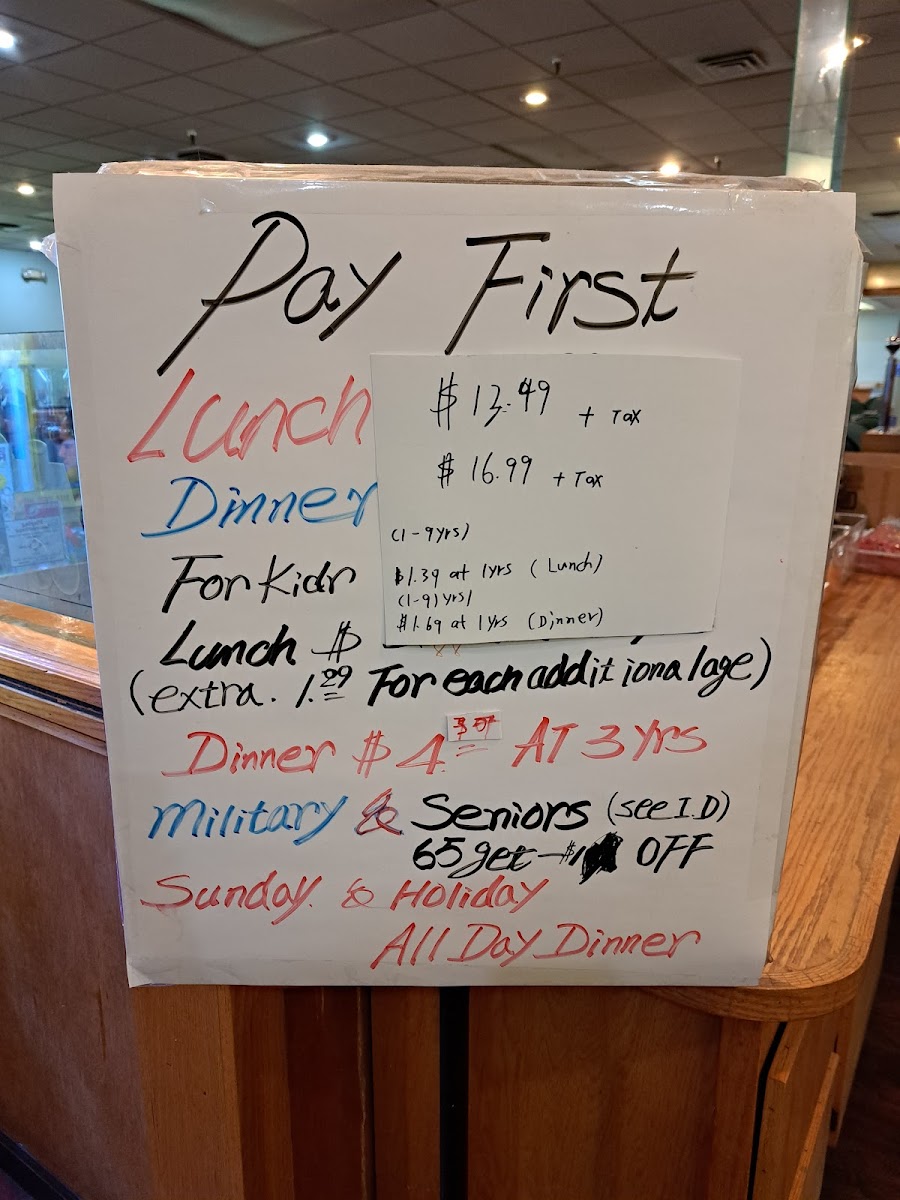 Pay First
Lunch $13.49 + Tax
Dinner $16.99 + Tax
(1-9yrs)
For Kids $1.39 at 1yrs (Lunch)
(1-9) yrs/
$1.69 at 1yrs (Dinner)
Lunch $
(extra. 1.29 For each additional age)
Dinner $4. AT 3 yrs
Military & Seniors (see I.D)
65 get - $1 OFF
Sunday. & Holiday
All Day Dinner